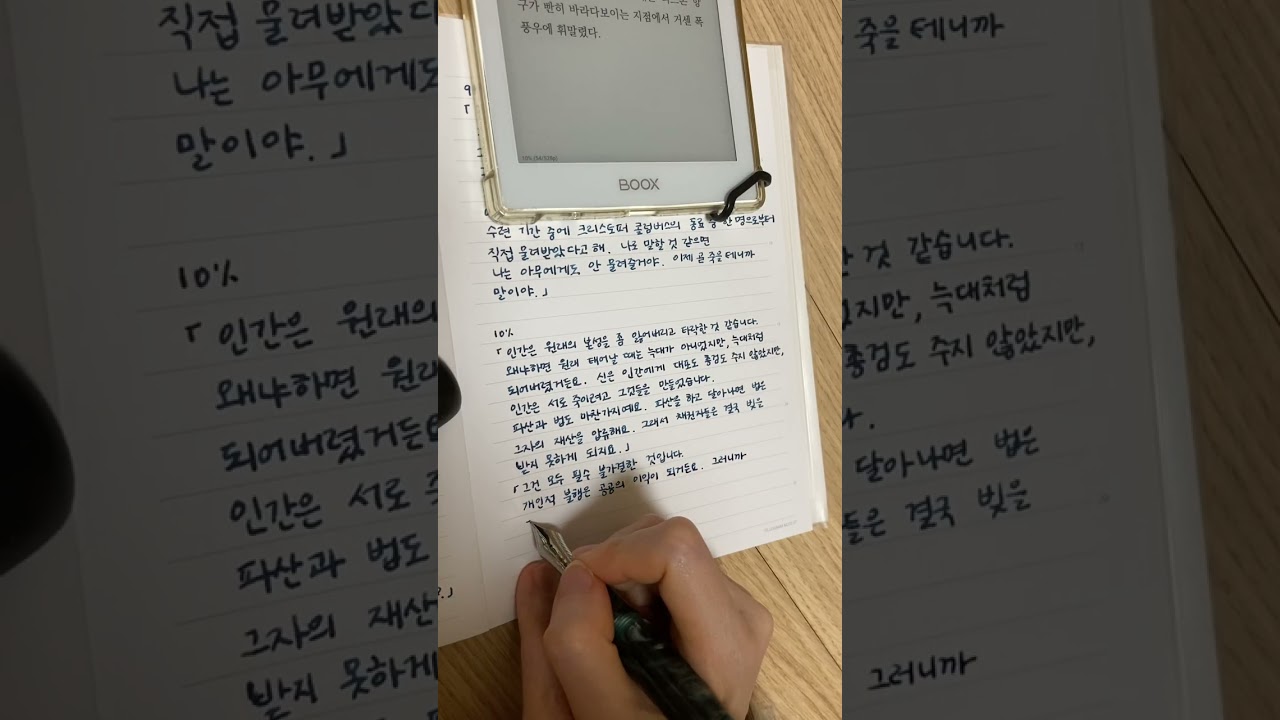 구가 빤히 바라다보이는 지점에서 거센 폭
풍우에 휘말렸다.
10% (54/528p)
BOOX
수련 기간 중에 크리스토퍼 콜럼버스의 동료 중 한 명으로부터
직접 물려받았다고 해. 나로 말할 것 같으면
나는 아무에게도 안 물려줄거야. 이제 곧 죽을테니까
말이야.」
10%
「인간은 원래의 본성을 좀 잃어버리고 타락한 것 같습니다.
왜냐하면 원래 태어날 때는 늑대가 아니었지만, 늑대처럼
되어버렸거든요. 신은 인간에게 대포도 총검도 주지 않았지만,
인간은 서로 죽이려고 그것들을 만들었습니다.
파산과 법도 마찬가지예요. 파산을 하고 달아나면 법은
그자의 재산을 압류해요. 그래서 채권자들은 결국 빚을
받지 못하게 되지요.」
「그건 모두 필수 불가결한 것입니다.
개인적 불행은 공공의 이익이 되거든요. 그러니까